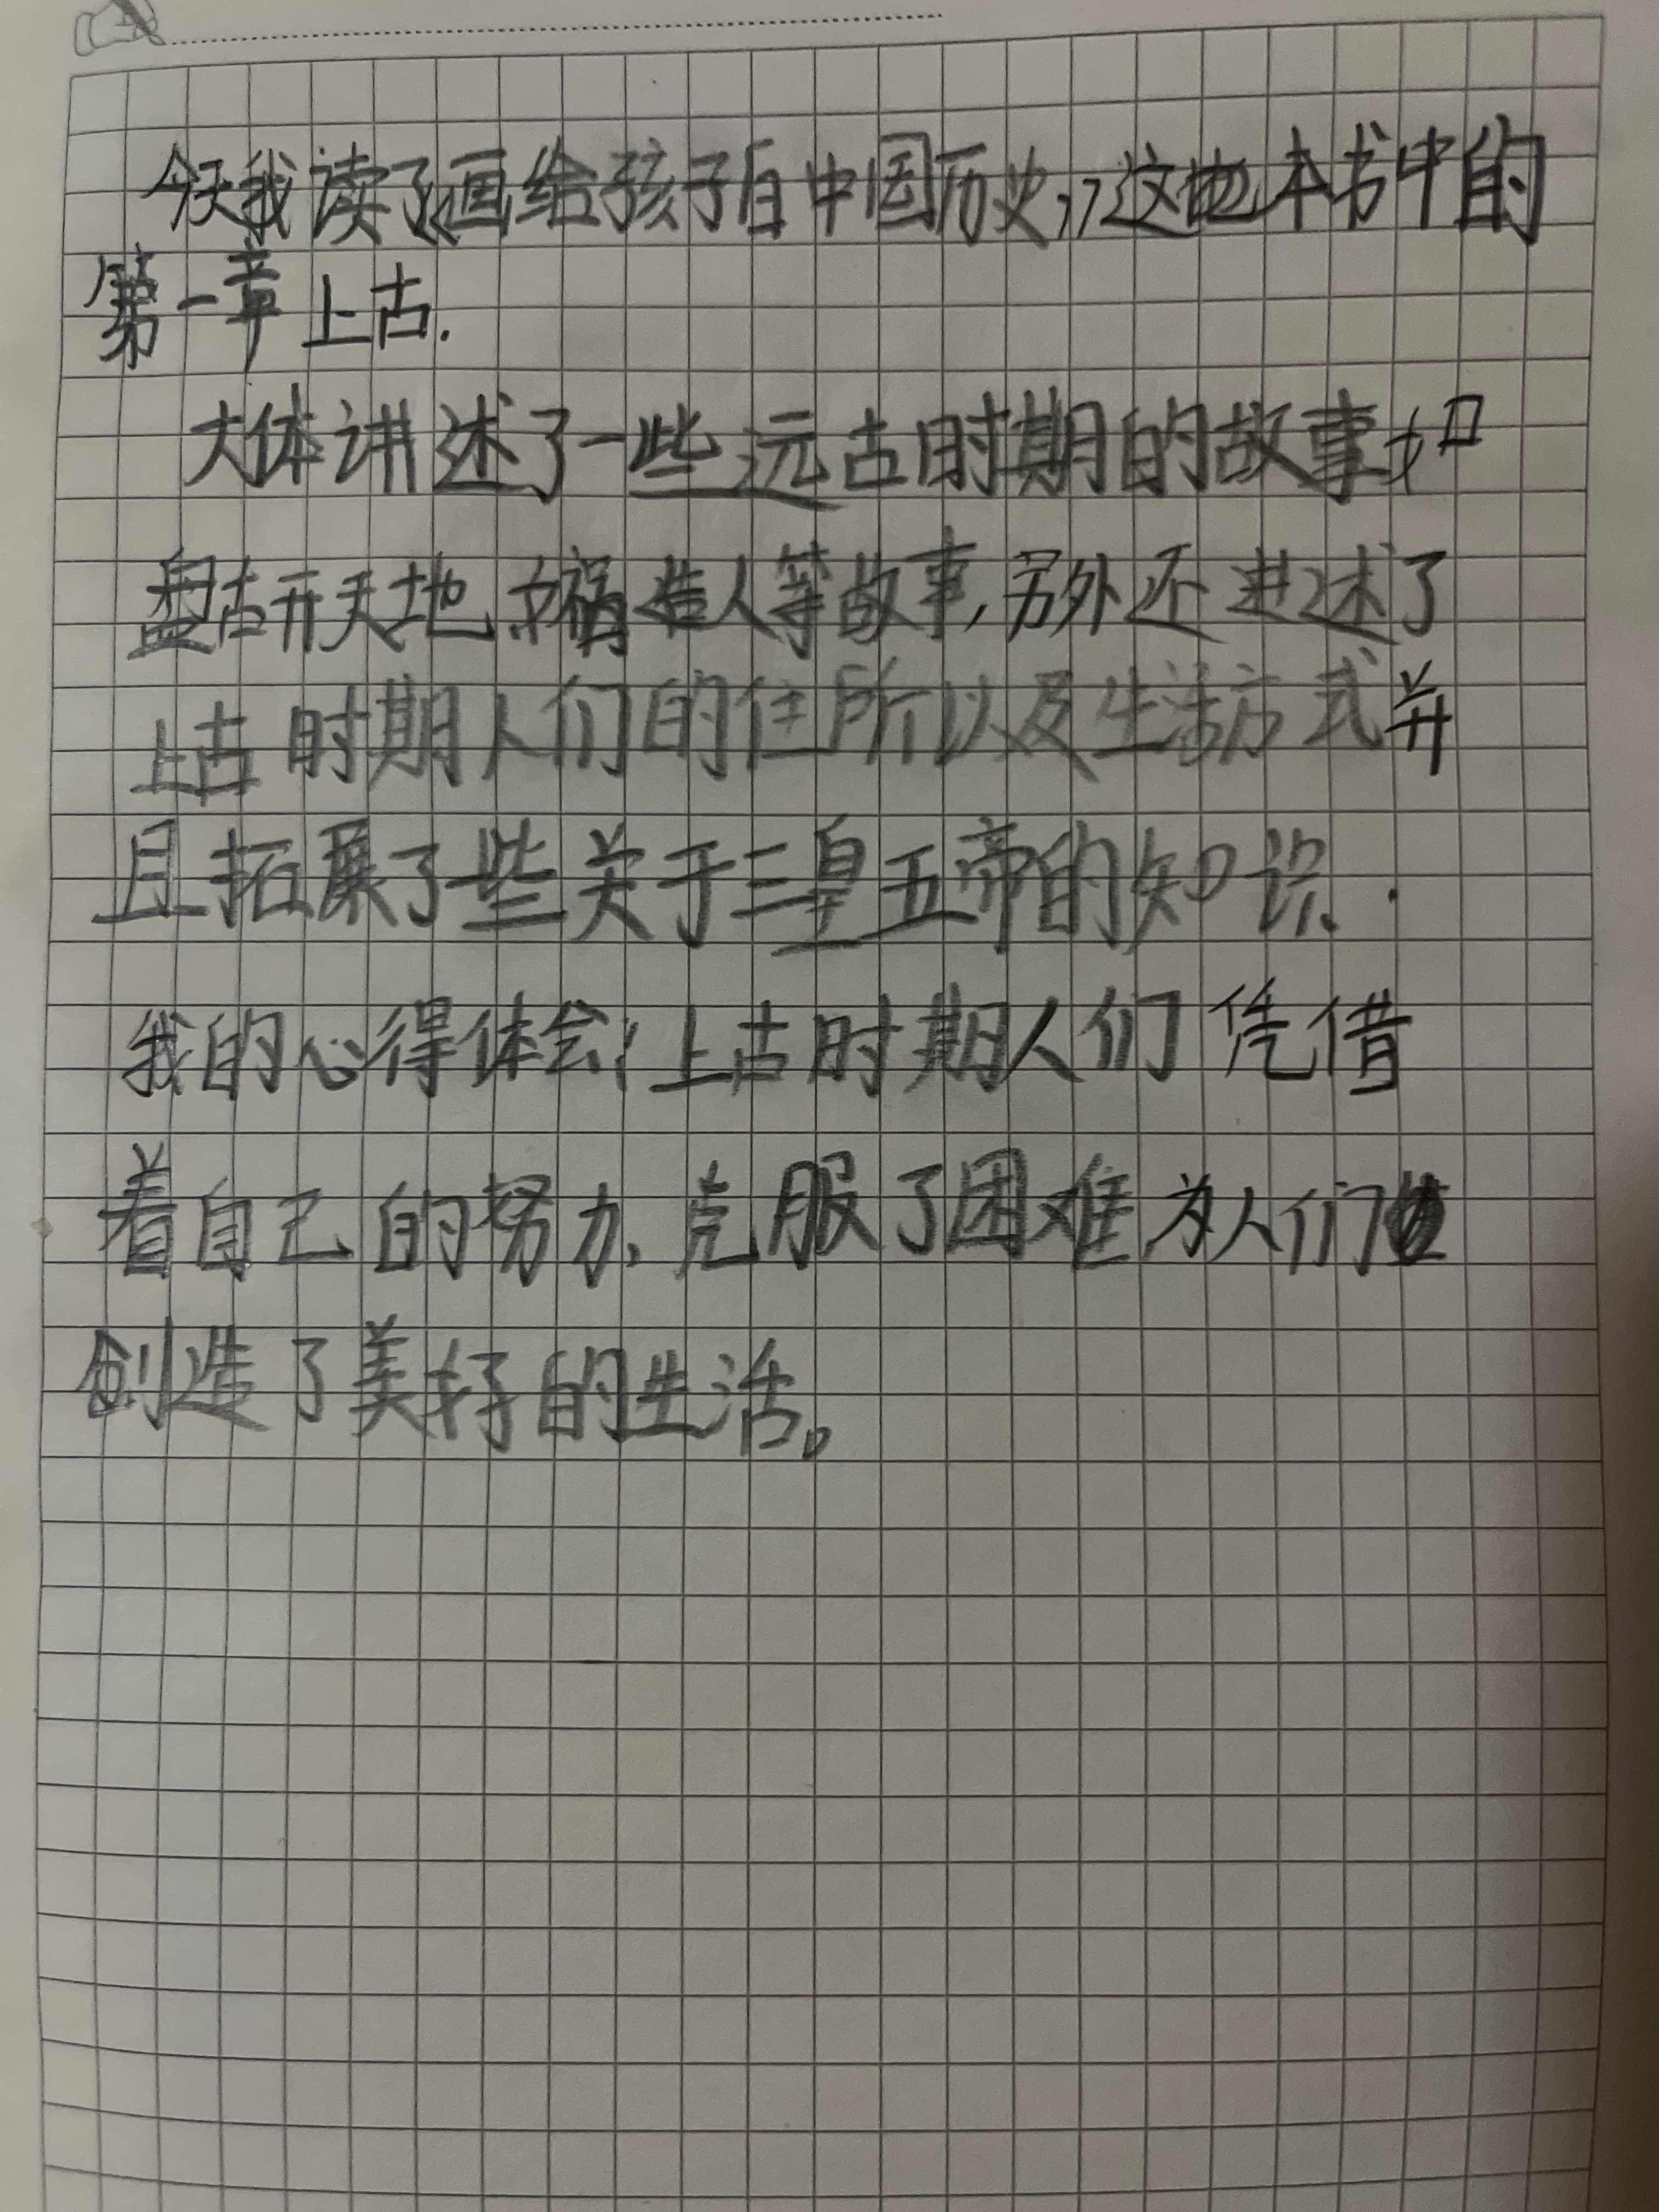 今天我读了《画给孩子自中国历史》这地本书中的
第一章上古.
大体讲述了一些远古时期的故事如
盘古开天地、女祸造人等故事,另外还进述了
上古时期人们的住所以及生活方式并
且拓展了些关于三皇五帝的知识.
我的心得体会:上古时期人们凭借
着自己的努力、克服了困难为人们
创造了美好的生活。